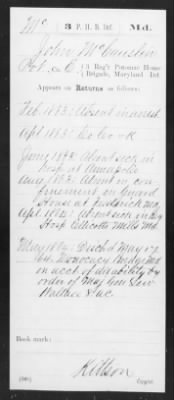 Mc 3 P. H. B. Inf. Md.
John McCaustin
Pvt., Co. C, 3 Reg't Potomac Home
Brigade, Maryland Inf.
Appears on Returns as follows:
Feb. 1863: Absent in arrest
Apl 1863: Co. Cook
June 1863 Absent sick in
hosp. at Annapolis
Aug. 1863: Absent in con
finement in Guard
House at Frederick, Md.
Apl. 1864: Absent sick in
Hosp. Ellicotts Mills Md.
May 1864: Disch'd May 17
Monocacy Bridge Md
on acct of disability by
order of Maj Gen Lew
Wallace
Book mark:
Kitson
Copyist.